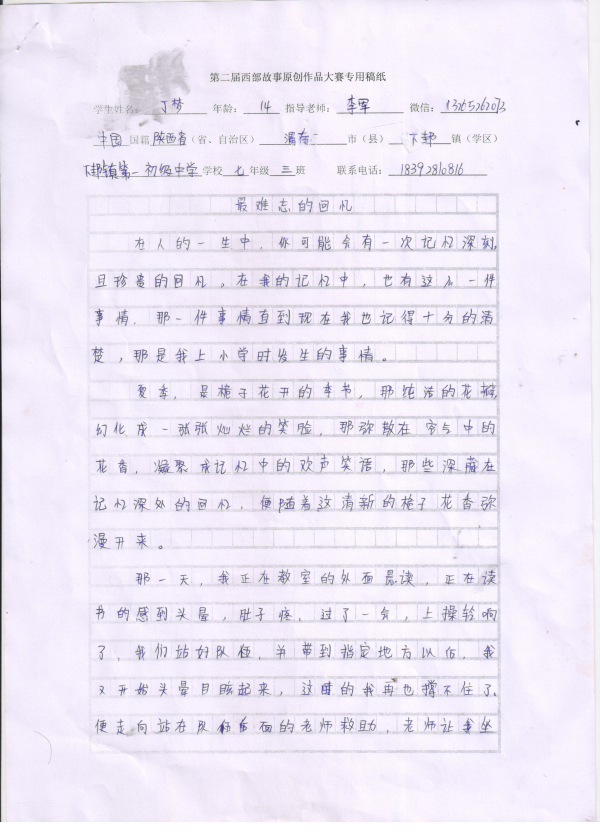 第二届西部故事原创作品大赛专用稿纸
学生姓名: 丁梦 年龄: 14 指导老师: 李军 微信:
中国 国籍 陕西省 (省、自治区) 渭南 市(县) 下邽 镇(学区)
下邽镇第一初级中学 学校 七 年级 三 班 联系电话: 18392810816
最难忘的回忆
在人的一生中,你可能会有一次记忆深刻
且珍贵的回忆,在我的记忆中,也有这么一件
事情,那一件事情直到现在我也记得十分的清
楚,那是我上小学时发生的事情。
夏季,是栀子花开的季节,那纯洁的花瓣
幻化成一张张灿烂的笑脸,那弥散在空气中的
花香,凝聚成记忆中的欢声笑语,那些深藏在
记忆深处的回忆,便随着这清新的栀子花香弥
漫开来。
那一天,我正在教室的外面晨读,正在读
书的感到头晕,肚子疼,过了一会,上操铃响
了,我们站好队伍,并带到指定地方以后,我
又开始头晕目眩起来,这时的我再也撑不住了,
便走向站在队伍后面的老师救助,老师让我坐